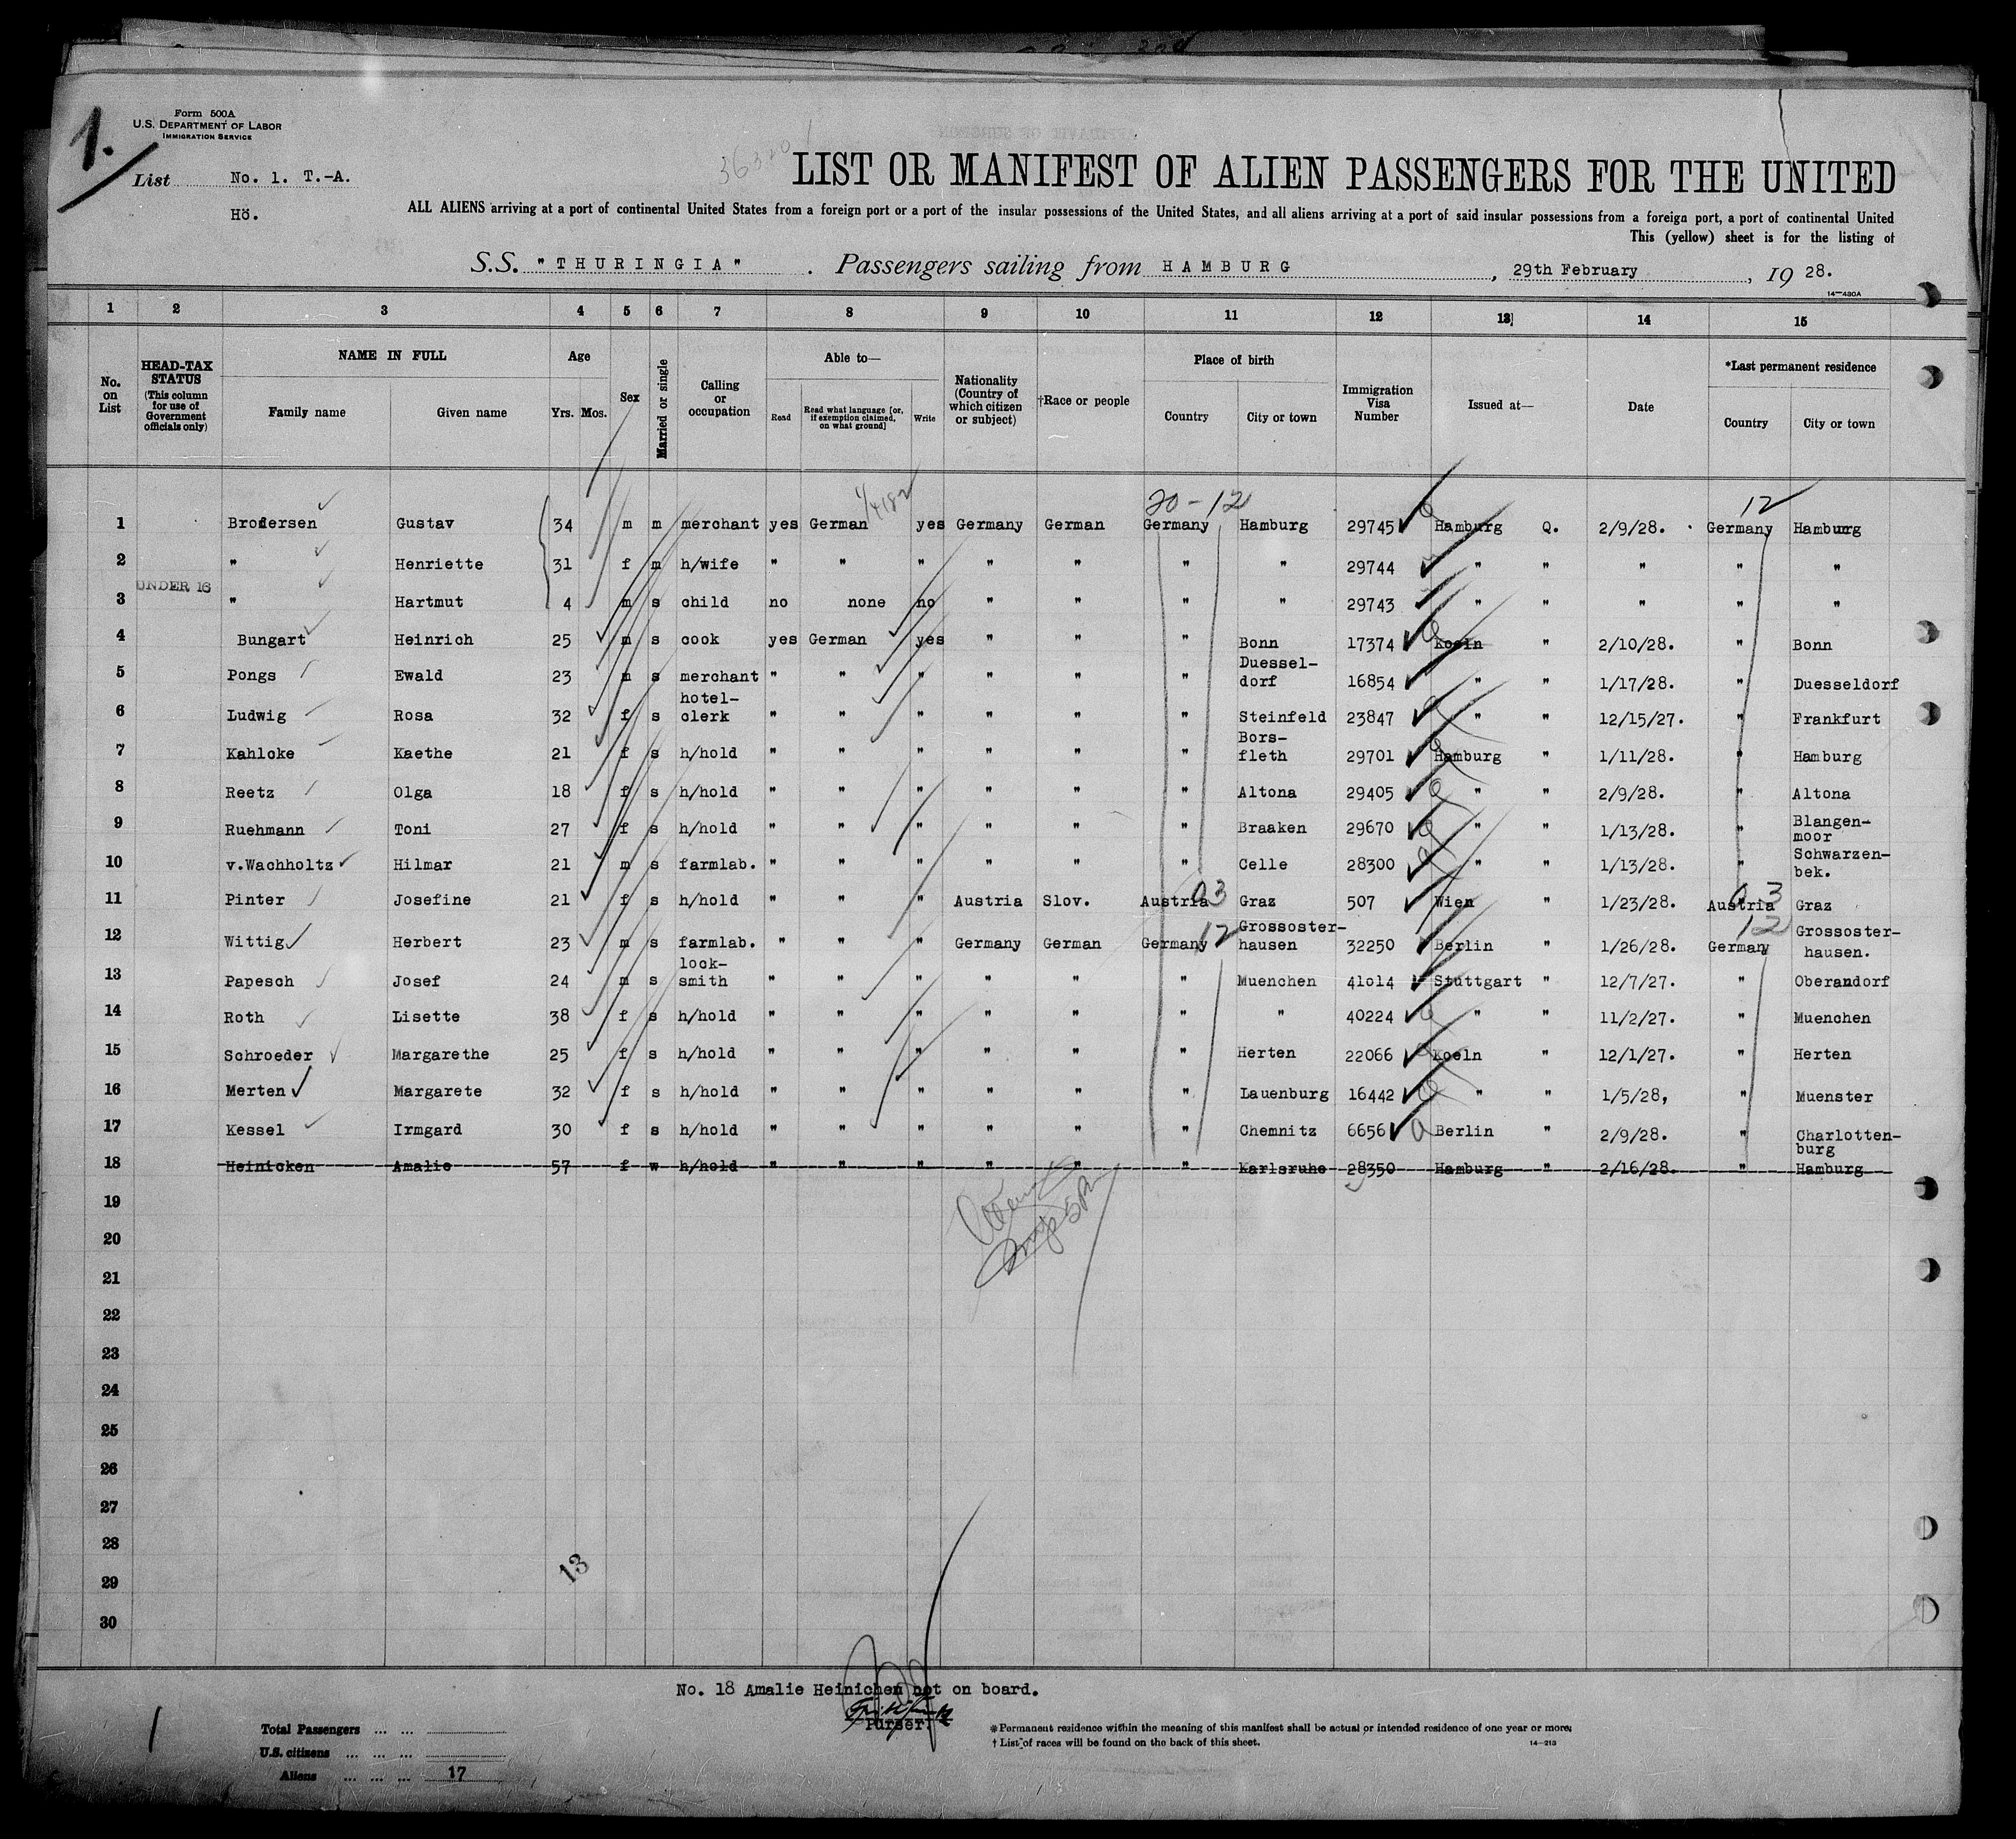 1.
Form 500A
U.S. DEPARTMENT OF LABOR
IMMIGRATION SERVICE
List No. 1. T.-A.
Hö.
LIST OR MANIFEST OF ALIEN PASSENGERS FOR THE UNITED
ALL ALIENS arriving at a port of continental United States from a foreign port or a port of the insular possessions of the United States, and all aliens arriving at a port of said insular possessions from a foreign port, a port of continental United
This (yellow) sheet is for the listing of
S.S. "THURINGIA" . Passengers sailing from HAMBURG , 29th February , 1928.
14—430A
1 2 3 4 5 6 7 8 9 10 11 12 13 14 15
No. on List
HEAD-TAX STATUS (This column for use of Government officials only)
NAME IN FULL
Family name Given name
Age
Yrs. Mos.
Sex
Married or single
Calling or occupation
Able to—
Read
Read what language [or, if exemption claimed, on what ground]
Write
Nationality (Country of which citizen or subject)
†Race or people
Place of birth
Country City or town
Immigration Visa Number
Issued at—
Date
*Last permanent residence
Country City or town
20-12 12
1 Brodersen Gustav 34 m m merchant yes German yes Germany German Germany Hamburg 29745 Hamburg Q. 2/9/28. Germany Hamburg
2 " Henriette 31 f m h/wife " " " " " " " 29744 " " " " "
UNDER 16
3 " Hartmut 4 m s child no none no " " " " 29743 " " " " "
4 Bungart Heinrich 25 m s cook yes German yes " " " Bonn 17374 Koeln " 2/10/28. " Bonn
5 Pongs Ewald 23 m s merchant " " " " " " Duessel-dorf 16854 " " 1/17/28. " Duesseldorf
6 Ludwig Rosa 32 f s hotel-clerk " " " " " " Steinfeld 23847 " " 12/15/27. " Frankfurt
7 Kahlcke Kaethe 21 f s h/hold " " " " " " Bors-fleth 29701 Hamburg " 1/11/28. " Hamburg
8 Reetz Olga 18 f s h/hold " " " " " " Altona 29405 " " 2/9/28. " Altona
9 Ruehmann Toni 27 f s h/hold " " " " " " Braaken 29670 " " 1/13/28. " Blangen-moor
10 v.Wachholtz Hilmar 21 m s farmlab. " " " " " " Celle 28300 " " 1/13/28. " Schwarzen-bek.
11 Pinter Josefine 21 f s h/hold " " " Austria Slov. Austria 03 Graz 507 Wien " 1/23/28. Austria 03 Graz
12 Wittig Herbert 23 m s farmlab. " " " Germany German Germany 12 Grossoster-hausen 32250 Berlin " 1/26/28. Germany 12 Grossoster-hausen.
13 Papesch Josef 24 m s lock-smith " " " " " " Muenchen 41014 Stuttgart " 12/7/27. " Oberandorf
14 Roth Lisette 38 f s h/hold " " " " " " " 40224 " " 11/2/27. " Muenchen
15 Schroeder Margarethe 25 f s h/hold " " " " " " Herten 22066 Koeln " 12/1/27. " Herten
16 Merten Margarete 32 f s h/hold " " " " " " Lauenburg 16442 " " 1/5/28, " Muenster
17 Kessel Irmgard 30 f s h/hold " " " " " " Chemnitz 6656 Berlin " 2/9/28. " Charlotten-burg
18 Heinicken Amalie 57 f w h/hold " " " " " " Karlsruhe 28350 Hamburg " 2/16/28. " Hamburg
19
20
21
22
23
24
25
26
27
28
29
30
13
No. 18 Amalie Heinichen not on board.
Purser
1
Total Passengers ... ...
U.S. citizens ... ... ...
Aliens ... ... ... 17
*Permanent residence within the meaning of this manifest shall be actual or intended residence of one year or more.
† List of races will be found on the back of this sheet.
14—213